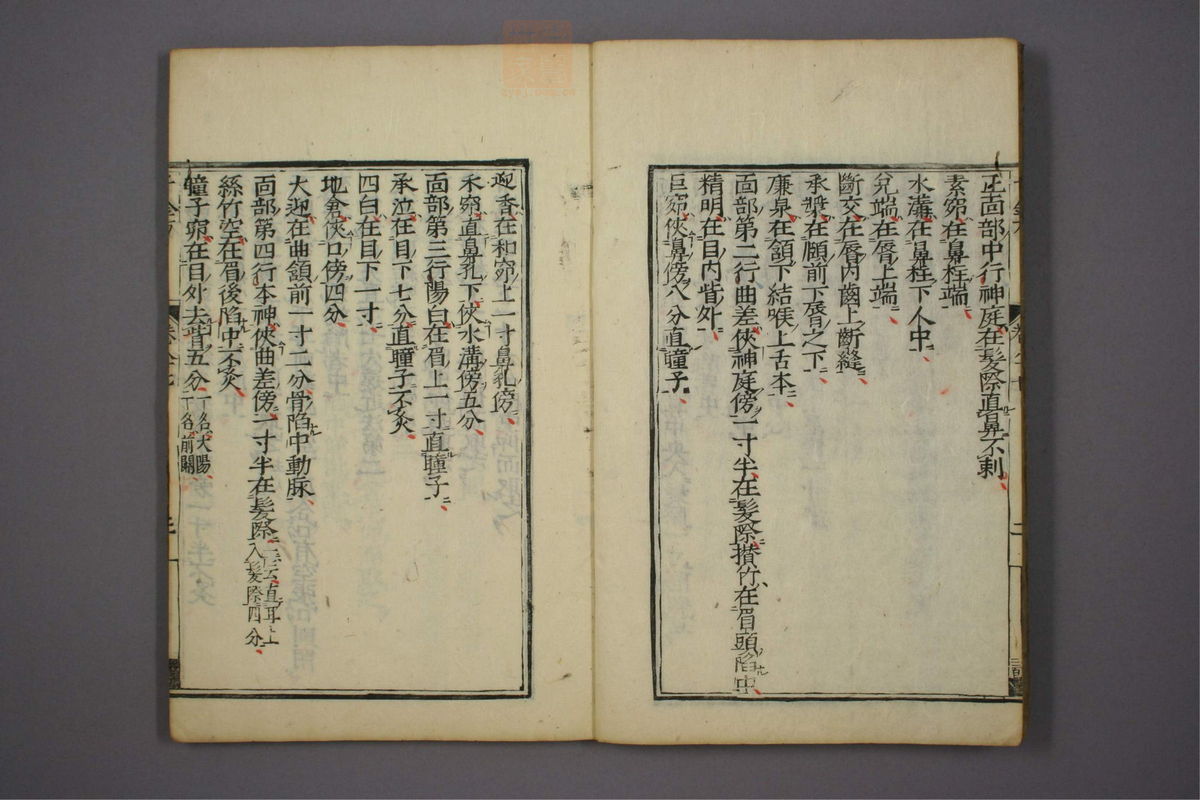 正面部中行神庭在髮際直鼻不刺
素窌在鼻柱端
水溝在鼻柱下人中
兌端在脣上端
斷交在脣內齒上斷縫
承漿在頤前下脣之下
廉泉在頷下結喉上舌本
面部第二行曲差俠神庭傍一寸半在髮際攢竹在眉頭陷中
精明在目內眥外
巨窌俠鼻傍八分直瞳子
迎香在和窌上一寸鼻孔傍
禾窌直鼻孔下俠水溝傍五分
面部第三行陽白在眉上一寸直瞳子
承泣在目下七分直瞳子不灸
四白在目下一寸
地倉俠口傍四分
大迎在曲頷前一寸二分骨陷中動脉
面部第四行本神俠曲差傍一寸半在髮際一云直耳上入髮際四分
絲竹空在眉後陷中不灸
瞳子窌在目外去眥五分一名太陽一名前關